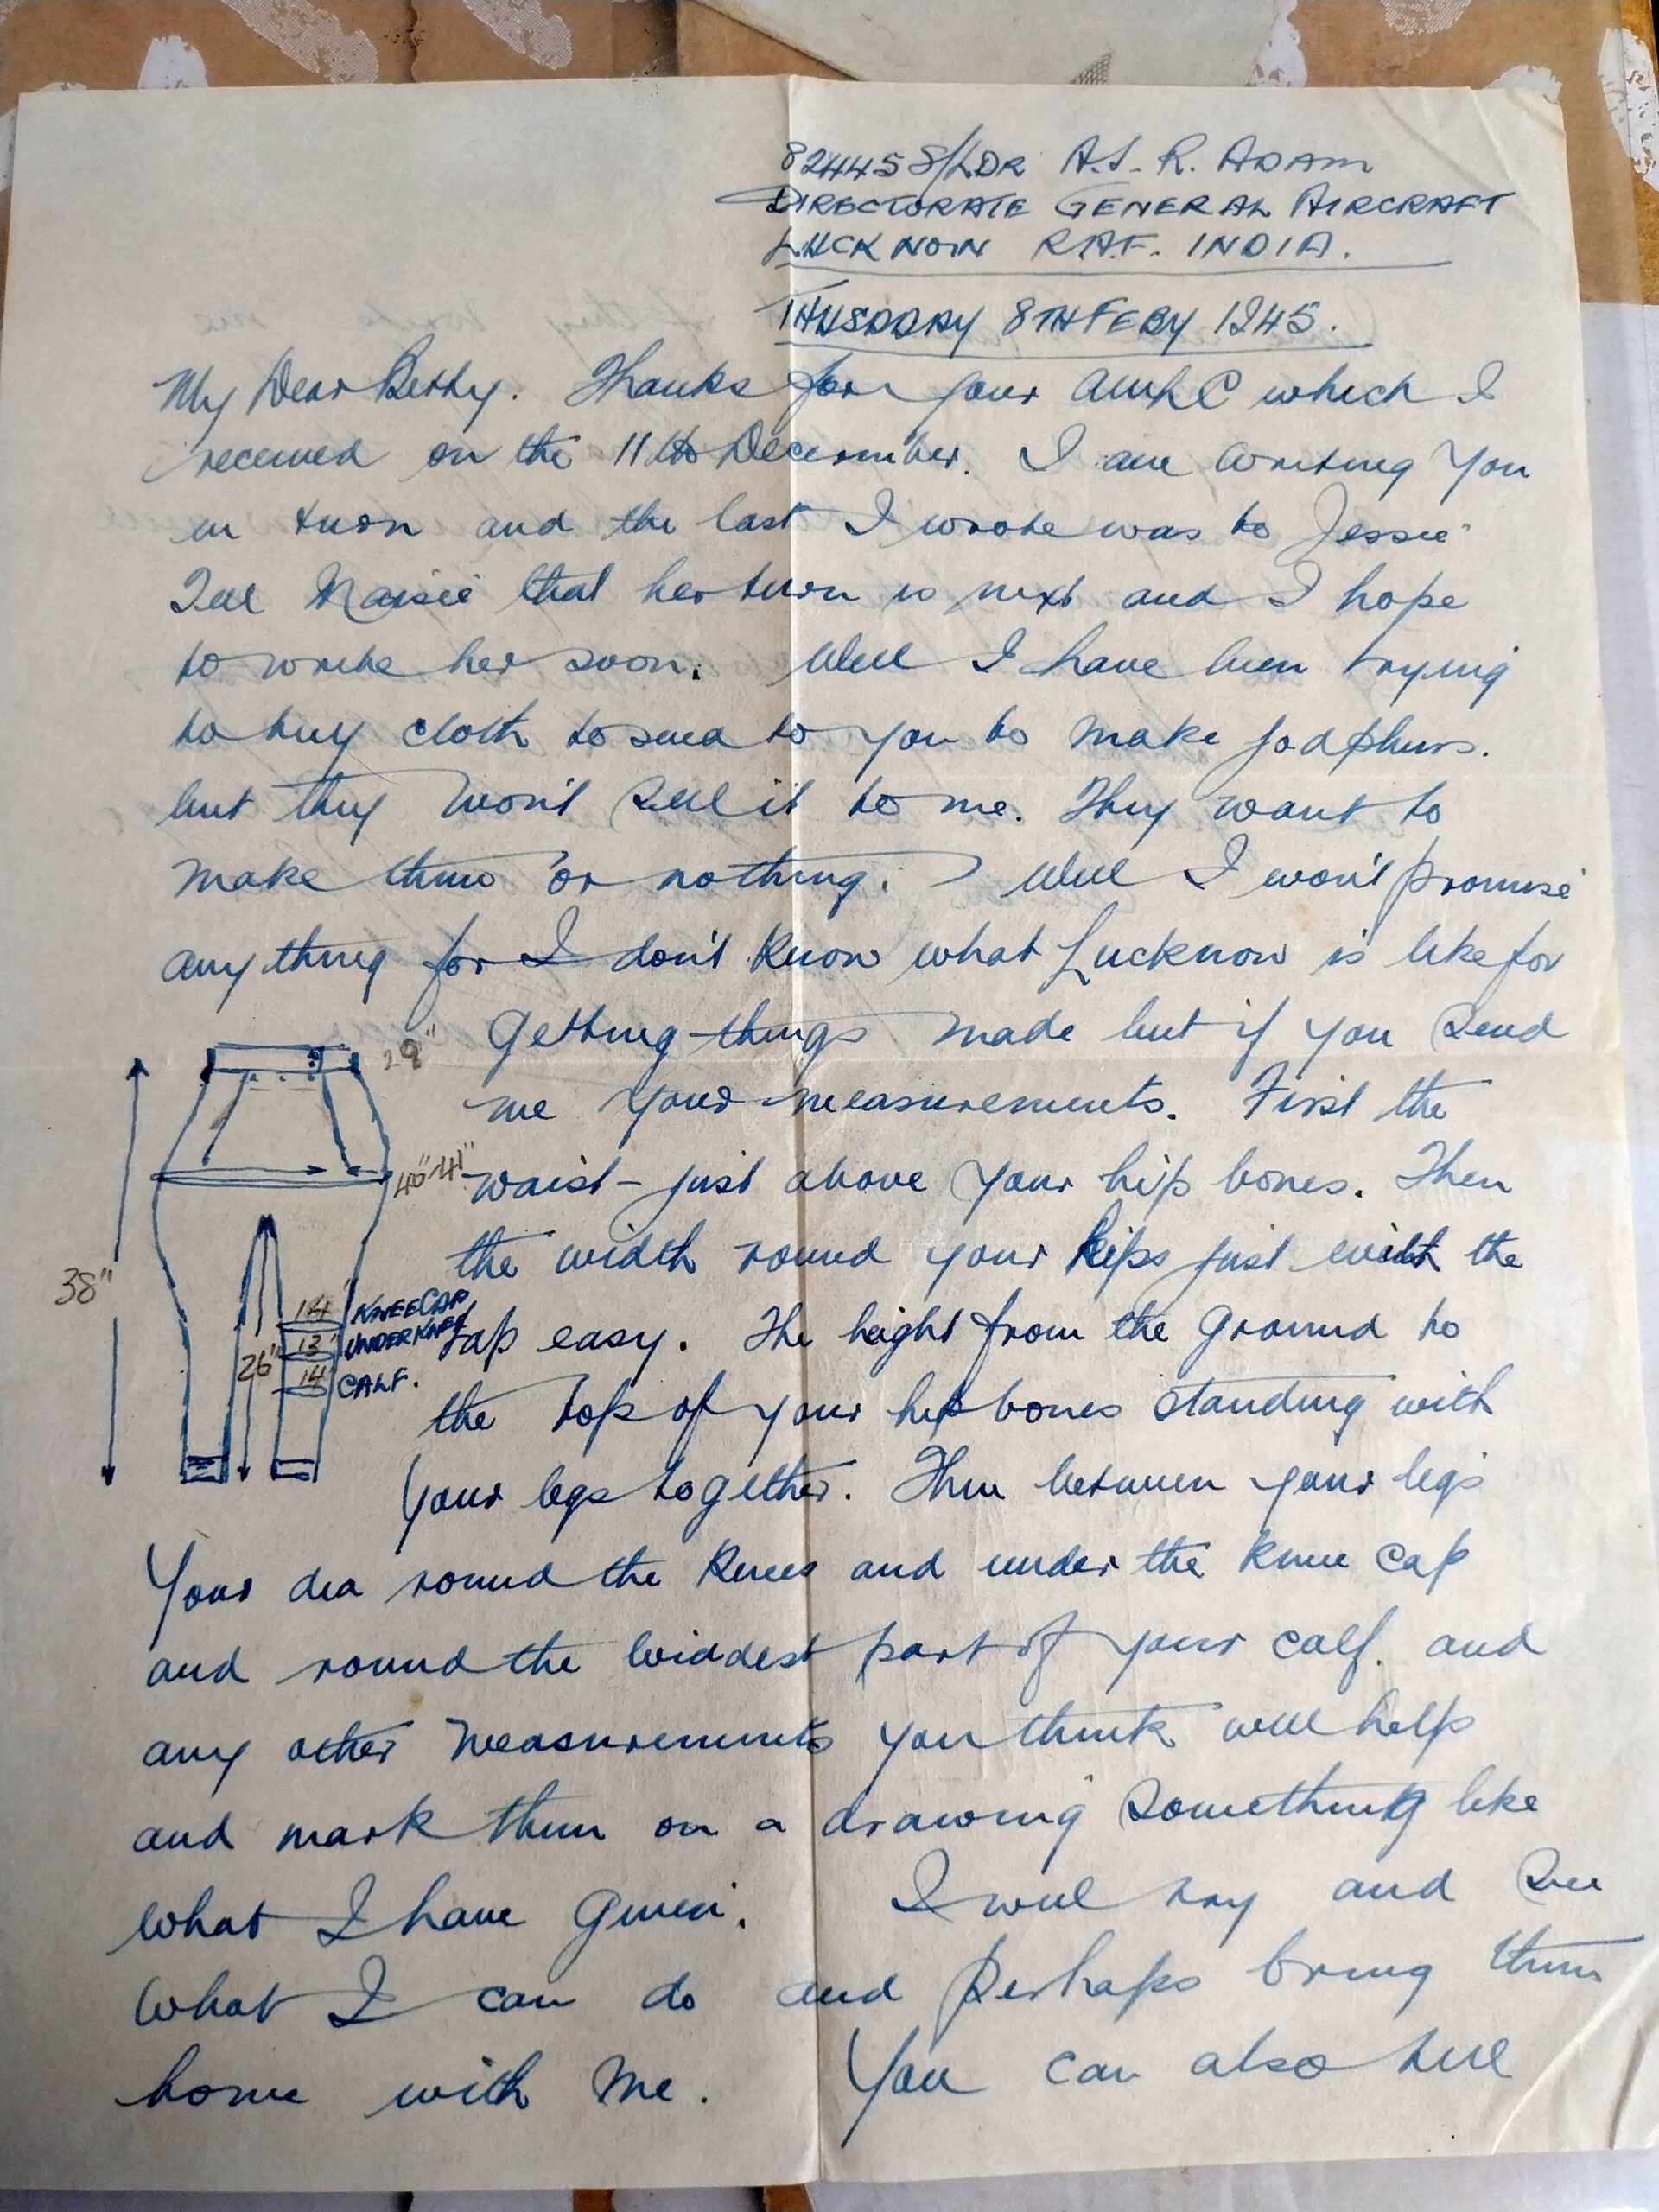 82445 S/LDR A.S. R. ADAM
DIRECTORATE GENERAL AIRCRAFT
LUCKNOW R.A.F. INDIA.
THUSDDAY 8TH FEBY 1945.
My Dear Betty. Thanks for your AMLC which I
received on the 11th December. I am writing you
in turn and the last I wrote was to Jessie
Tell Maisie that her turn is next and I hope
to write her soon. Well I have been trying
to buy cloth to send to you to make jodphurs.
but they won't sell it to me. They want to
make them or nothing. Well I won't promise
anything for I don't know what Lucknow is like for
getting things made but if you send
me your measurements. First the
waist - just above your hip bones. Then
the width round your hips just with the
tap easy. The height from the ground to
the top of your hip bones standing with
your legs together. Then between your legs
Your dia round the knees and under the knee cap
and round the widdest part of your calf. and
any other measurements you think will help
and mark them on a drawing something like
what I have given. I will try and see
what I can do and perhaps bring them
home with me. You can also tell
29"
40"-41"
38"
14" KNEE CAP
13" UNDER KNEE
26"
14" CALF.